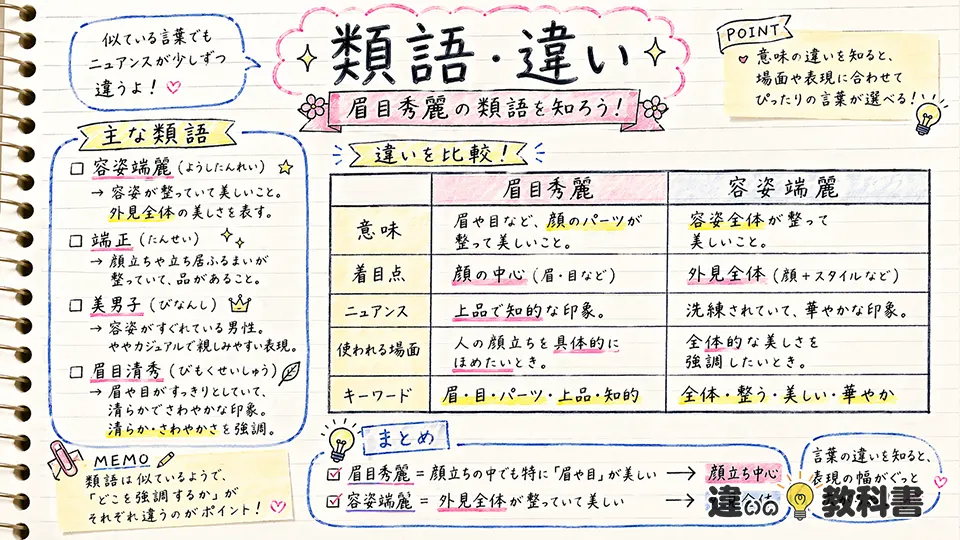 似ている言葉でも
ニュアンスが少しずつ
違うよ！
類語・違い
眉目秀麗の類語を知ろう！
POINT
意味の違いを知ると、
場面や表現に合わせて
ぴったりの言葉が選べる！
主な類語
容姿端麗（ようしたんれい）
→ 容姿が整っていて美しいこと。
外見全体の美しさを表す。
端正（たんせい）
→ 顔立ちや立ち居ふるまいが
整っていて、品があること。
美男子（びなんし）
→ 容姿がすぐれている男性。
ややカジュアルで親しみやすい表現。
眉目清秀（びもくせいしゅう）
→ 眉や目がすっきりとしていて、
清らかでさわやかな印象。
清らか・さわやかさを強調。
MEMO
類語は似ているようで、
「どこを強調するか」が
それぞれ違うのがポイント！
違いを比較！
眉目秀麗 容姿端麗
意味 眉や目など、顔のパーツが 容姿全体が整って
整って美しいこと。 美しいこと。
着目点 顔の中心（眉・目など） 外見全体（顔+スタイルなど）
ニュアンス 上品で知的な印象。 洗練されていて、華やかな印象。
使われる場面 人の顔立ちを具体的に 全体的な美しさを
ほめたいとき。 強調したいとき。
キーワード 眉・目・パーツ・上品・知的 全体・整う・美しい・華やか
まとめ
眉目秀麗 = 顔立ちの中でも特に「眉や目」が美しい → 顔立ち中心
容姿端麗 = 外見全体が整っていて美しい →
言葉の違いを知ると、
表現の幅がぐっと
違いの教科書